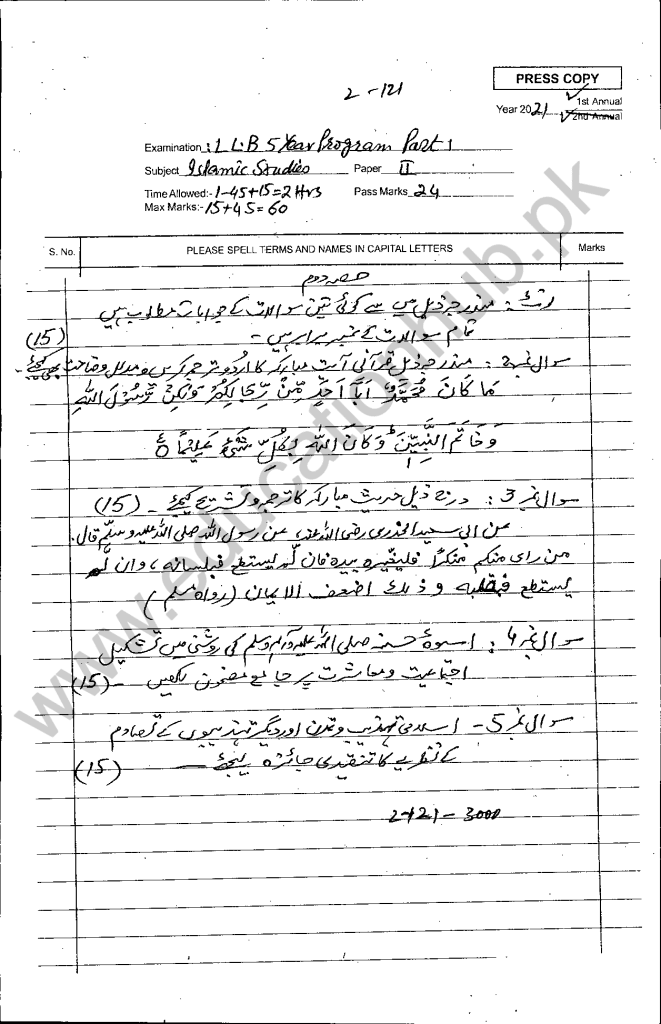 2-121
PRESS COPY
Year 2021 1st Annual
2nd Annual
Examination: LLB 5 Year Program Part 1
Subject Islamic Studies Paper II
Time Allowed:- 1-45+15=2 Hrs Pass Marks 24
Max Marks:- 15+45=60
S. No. PLEASE SPELL TERMS AND NAMES IN CAPITAL LETTERS Marks
حصہ دوم
نوٹ: مندرجہ ذیل میں سے کوئی تین سوالات کے جوابات مطلوب ہیں
تمام سوالات کے نمبر برابر ہیں - (15)
سوال نمبر 2: مندرجہ ذیل قرآنی آیت مبارکہ کا اُردو ترجمہ کریں و مدلل وضاحت بھی کیجئے -
مَا كَانَ مُحَمَّدٌ اَبَا اَحَدٍ مِّنْ رِّجَالِكُمْ وَلٰكِنْ رَّسُوْلَ اللّٰهِ
وَخَاتَمَ النَّبِيّٖنَ وَكَانَ اللّٰهُ بِكُلِّ شَیْءٍ عَلِيْمًا ۵
سوال نمبر 3: درج ذیل حدیث مبارکہ کا ترجمہ و تشریح کیجئے - (15)
عن ابی سعید الخدری رضی اللہ عنہ عن رسول اللہ صلی اللہ علیہ وسلم قال.
من رای منکم منکرًا فلیغیرہ بیدہ فان لم یستطع فبلسانہ، وان لم
یستطع فبقلبہ و ذلک اضعف الایمان (رواہ مسلم)
سوال نمبر 4: اسوۂ حسنہ صلی اللہ علیہ وآلہ وسلم کی روشنی میں تشکیل
اجتماعیت و معاشرت پر جامع مضمون لکھیں - (15)
سوال نمبر 5 - اسلامی تہذیب و تمدن اور دیگر تہذیبوں کے تصادم
کے نظریے کا تنقیدی جائزہ لیجئے - (15)
2-121-3000
www.educationhub.pk